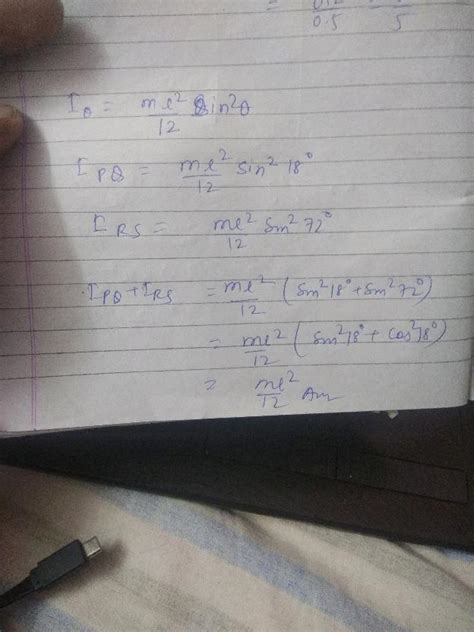 = 0.5 5
I_θ = ml²/12 sin²θ
I_PQ = ml²/12 sin² 18°
I_RS = ml²/12 sin² 72°
I_PQ + I_RS = ml²/12 (sin² 18° + sin² 72°)
= ml²/12 (sin² 18° + cos² 18°)
= ml²/12 Ans